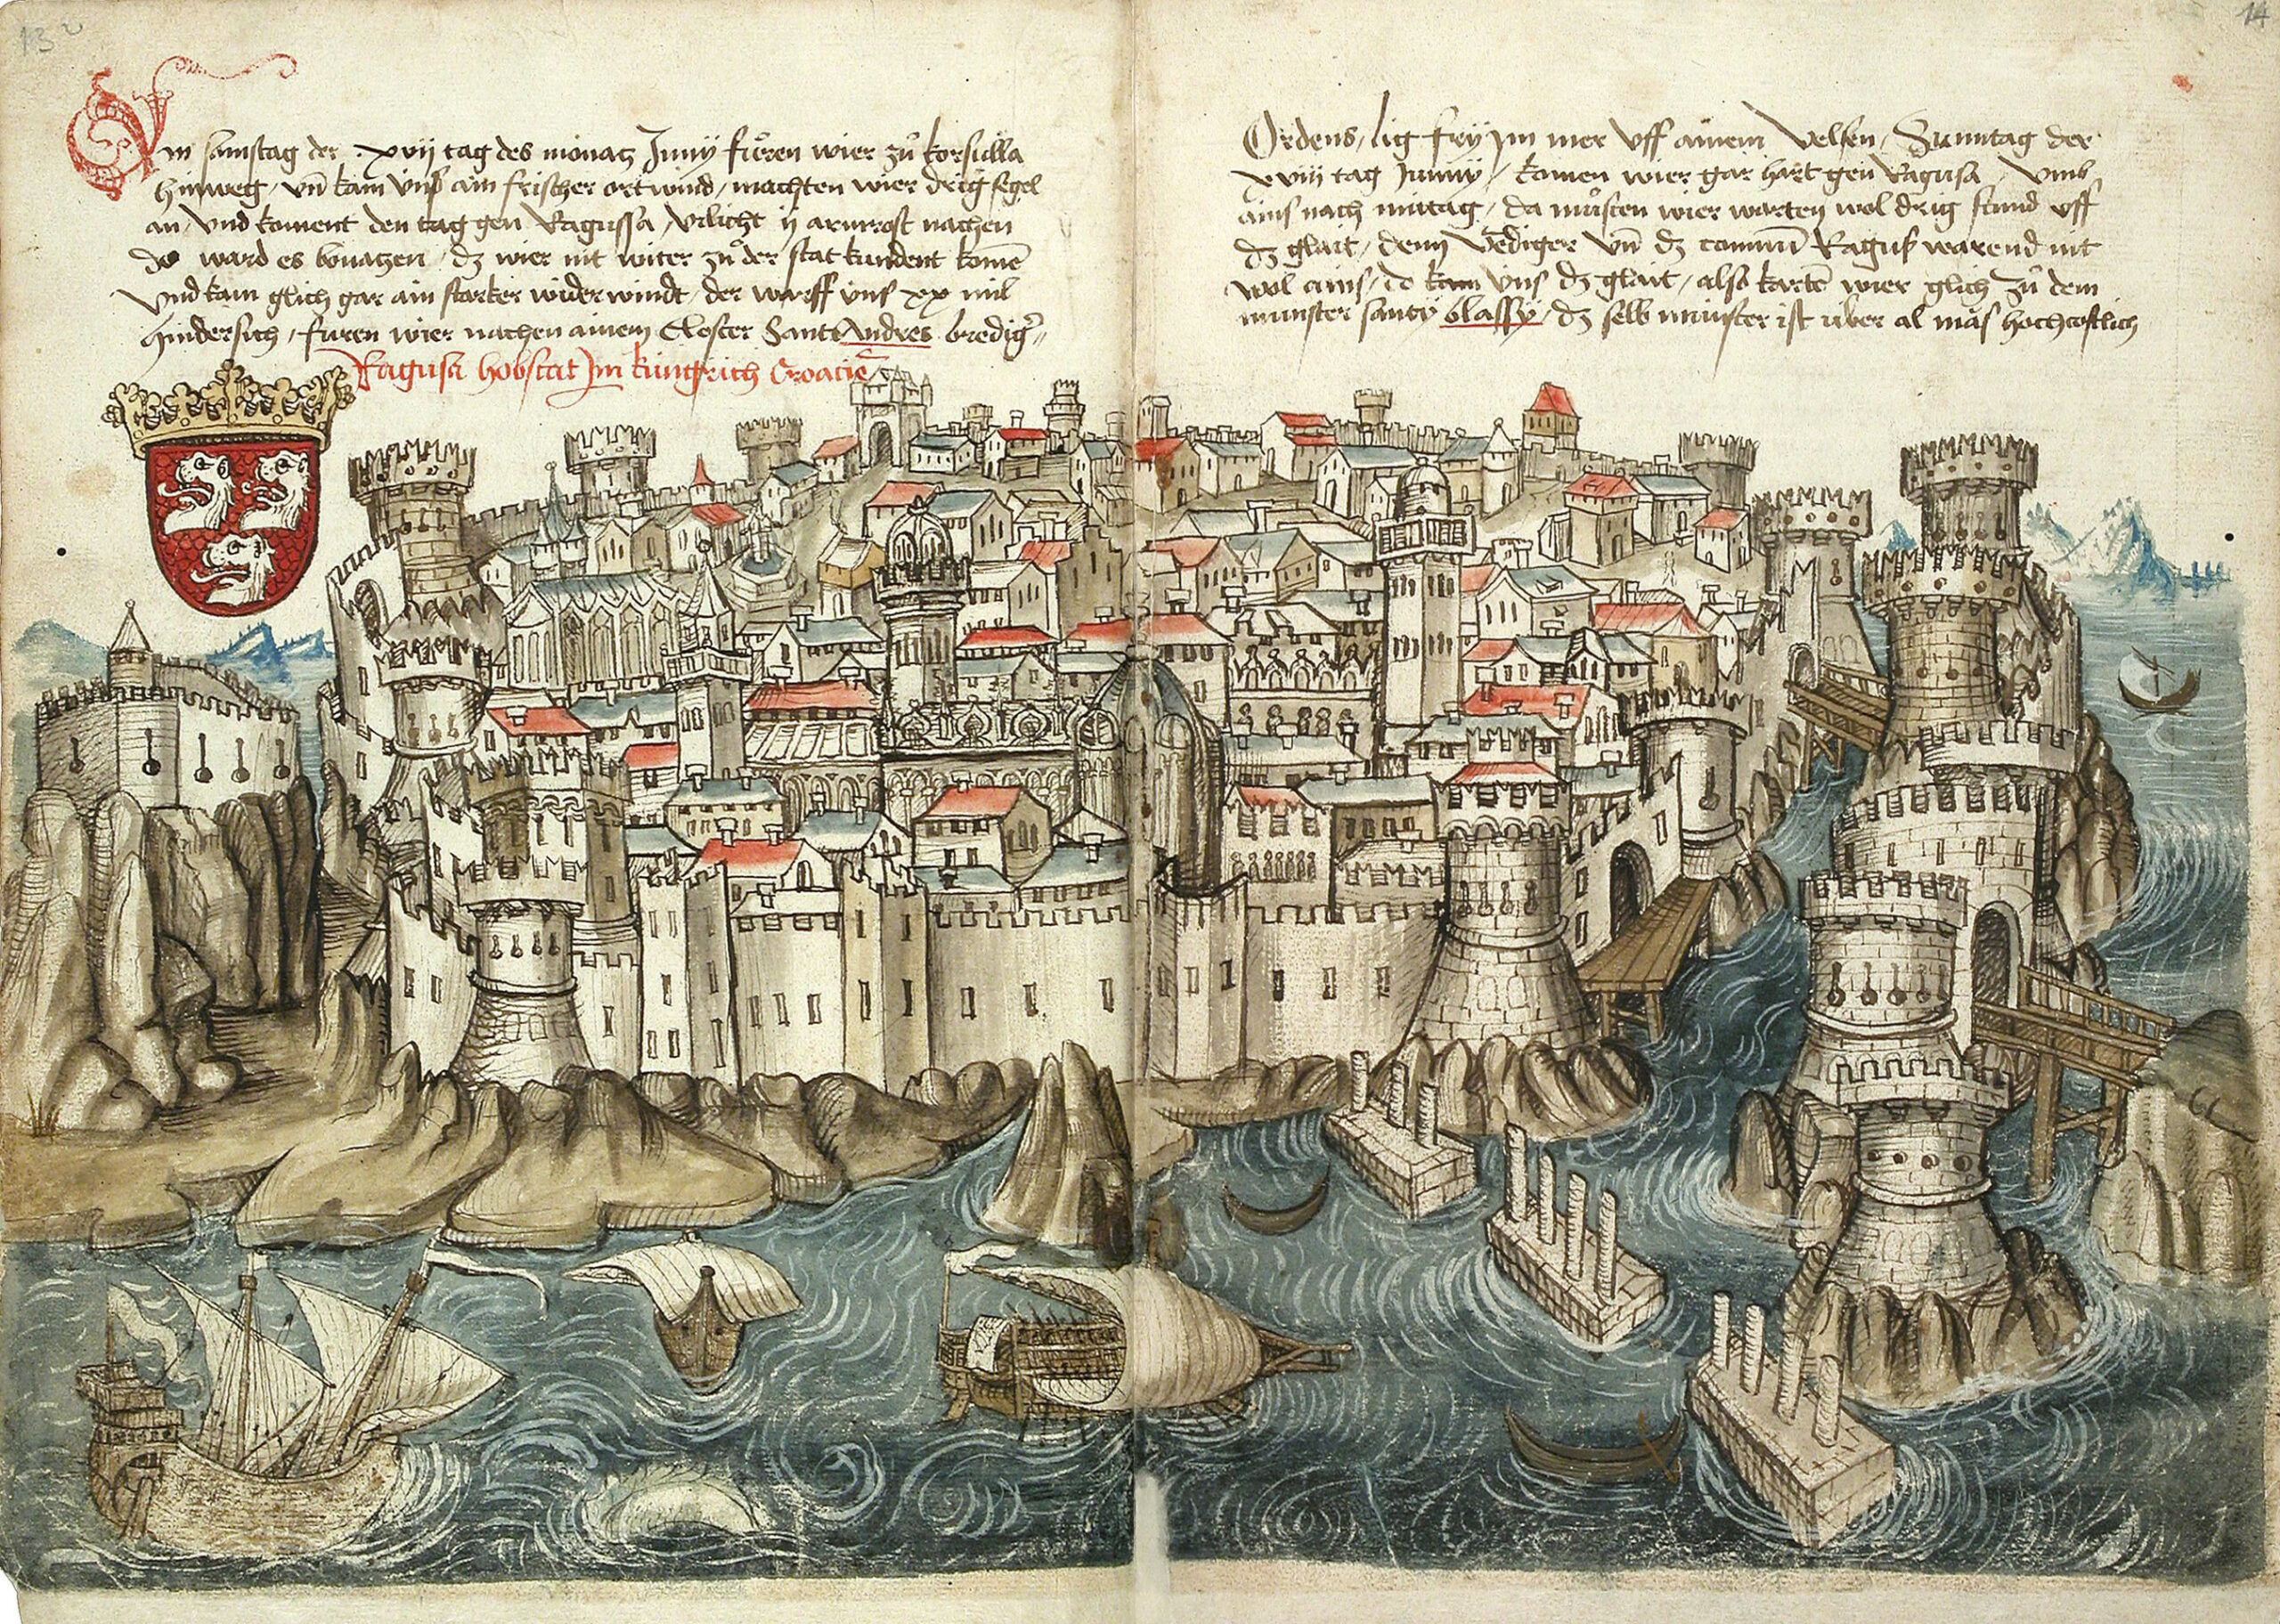 13
An samstag der . xvij tag des monatz Junij fůren wier zů korsulla
hinweg / vn̄ kam vnß ain frischer ortwind / machten wier drig segel
an / vnd koment den tag gen Ragussa / vilicht ij armrost nachen
do ward es bonatzen / dz wier nit witer zů der stat kundent komē
vnd kam glich gar ain starker widerwindt / der warff vnß xx mil
hindersich / fůren wier nachen ainem Closter Sant Andres bredigr̄
Ragusa hobstat Jm kùngrich Croaciē
14
Ordens / lig fry jm mer vff ainem Velsen / Sunntag der
xviij tag Junij / komen wier gar hart gen Ragusa / vmb
ains nach mitag / da můsten wier warten wol drig stund vff
dz glait / denn Vēdiger vn̄ dz comun̄ Raguß warend nit
wol ains / do kam vns dz glait / also kartē wier glich zů dem
munster santy blassy / dz selb munster ist über al mās hochcostlich